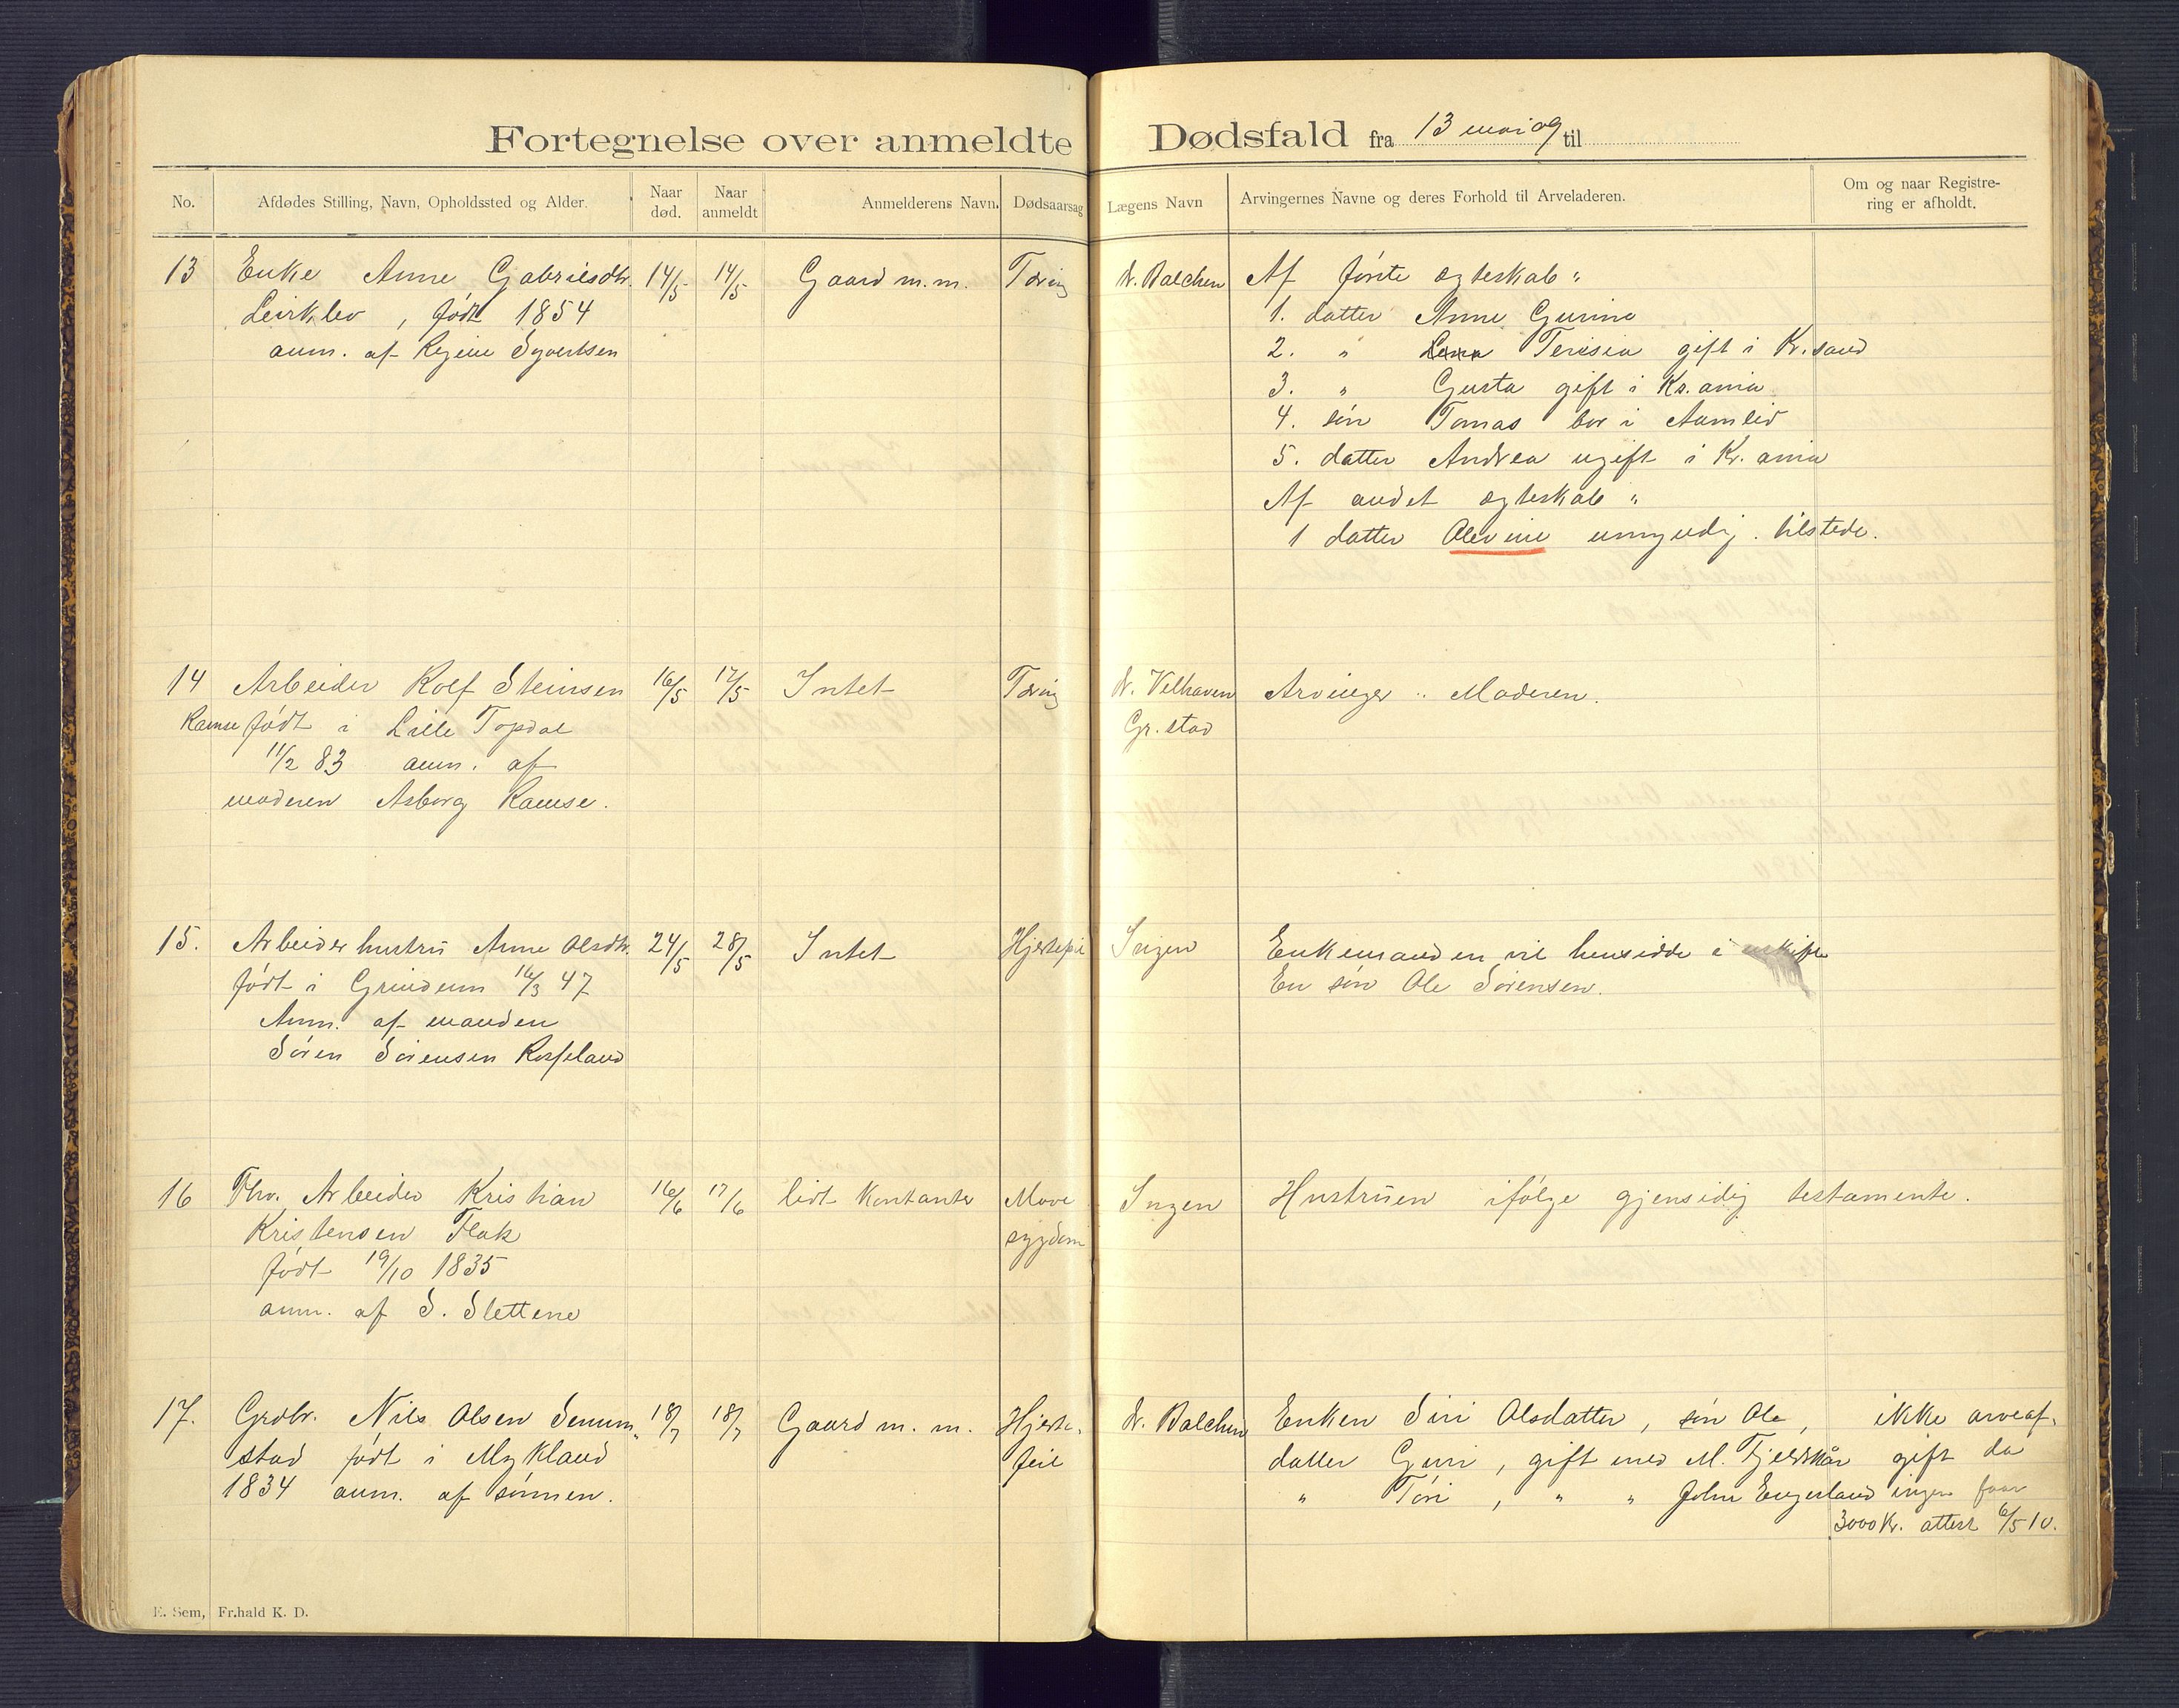 Fortegnelse over anmeldte Dødsfald fra 13 mai 09 til
No. Afdødes Stilling, Navn, Opholdssted og Alder. Naar død. Naar anmeldt Anmelderens Navn. Dødsaarsag Lægens Navn Arvingernes Navne og deres Forhold til Arveladeren. Om og naar Registrering er afholdt.
13 Enke Anne Gabrielsdtr. 14/5 14/5 Gaard m.m. Tæring dr. Balchen Af første ægteskab :
Leirklev , født 1854 1. datter Anne Gurine
anm. af Regine Syvertsen 2. " Teresia gift i Kr.sand
3. " Gusta gift i Kr.ania
4. søn Tomas bor i Aamlid
5. datter Andrea ugift i Kr.ania
Af andet ægteskab :
1 datter Olevine umyndig. tilstede.
14 Arbeider Rolf Steinsen 16/5 17/5 Intet Tæring dr. Velhaven Arvinger : Moderen.
Ramse født i Lille Topdal Gr.stad
11/2 83 anm. af
moderen Asborg Ramse.
15. Arbeiderhustru Anne Olsdtr. 24/5 28/5 Intet Hjertefeil Ingen Enkemanden vil hensidde i uskifte
født i Grindum 16/3 47 En søn Ole Sørensen.
Anm. af manden
Søren Sørensen Rosseland
16 Fhv. Arbeider Kristian 16/6 17/6 lidt kontanter Mave Ingen Hustruen ifølge gjensidig testamente.
Kristensen Flak sygdom
født 19/10 1835
anm. af S. Slettene
17. Grdbr. Nils Olsen Senum- 18/7 18/7 Gaard m. m. Hjerte- dr. Balchen Enken Siri Olsdatter, søn Ole, ikke arveaf-
stad født i Mykland feil datter Guri, gift med M. Fjeldskår gift da
1834 anm. af sønnen. " Tøri , " " John Engesland ingen faar
3000 Kr. attest 6/5 10.
E. Sem, Fr.hald K. D.